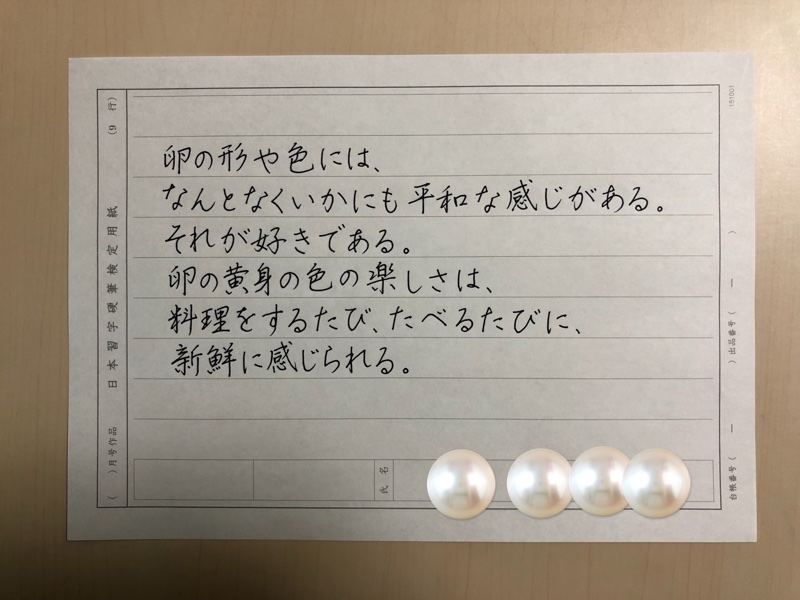 卵の形や色には、
なんとなくいかにも平和な感じがある。
それが好きである。
卵の黄身の色の楽しさは、
料理をするたび、たべるたびに、
新鮮に感じられる。
氏名
(　　)月号作品　日本習字硬筆検定用紙　(9　行)
151001
台帳番号(　　—　　)出品番号(　　—　　)